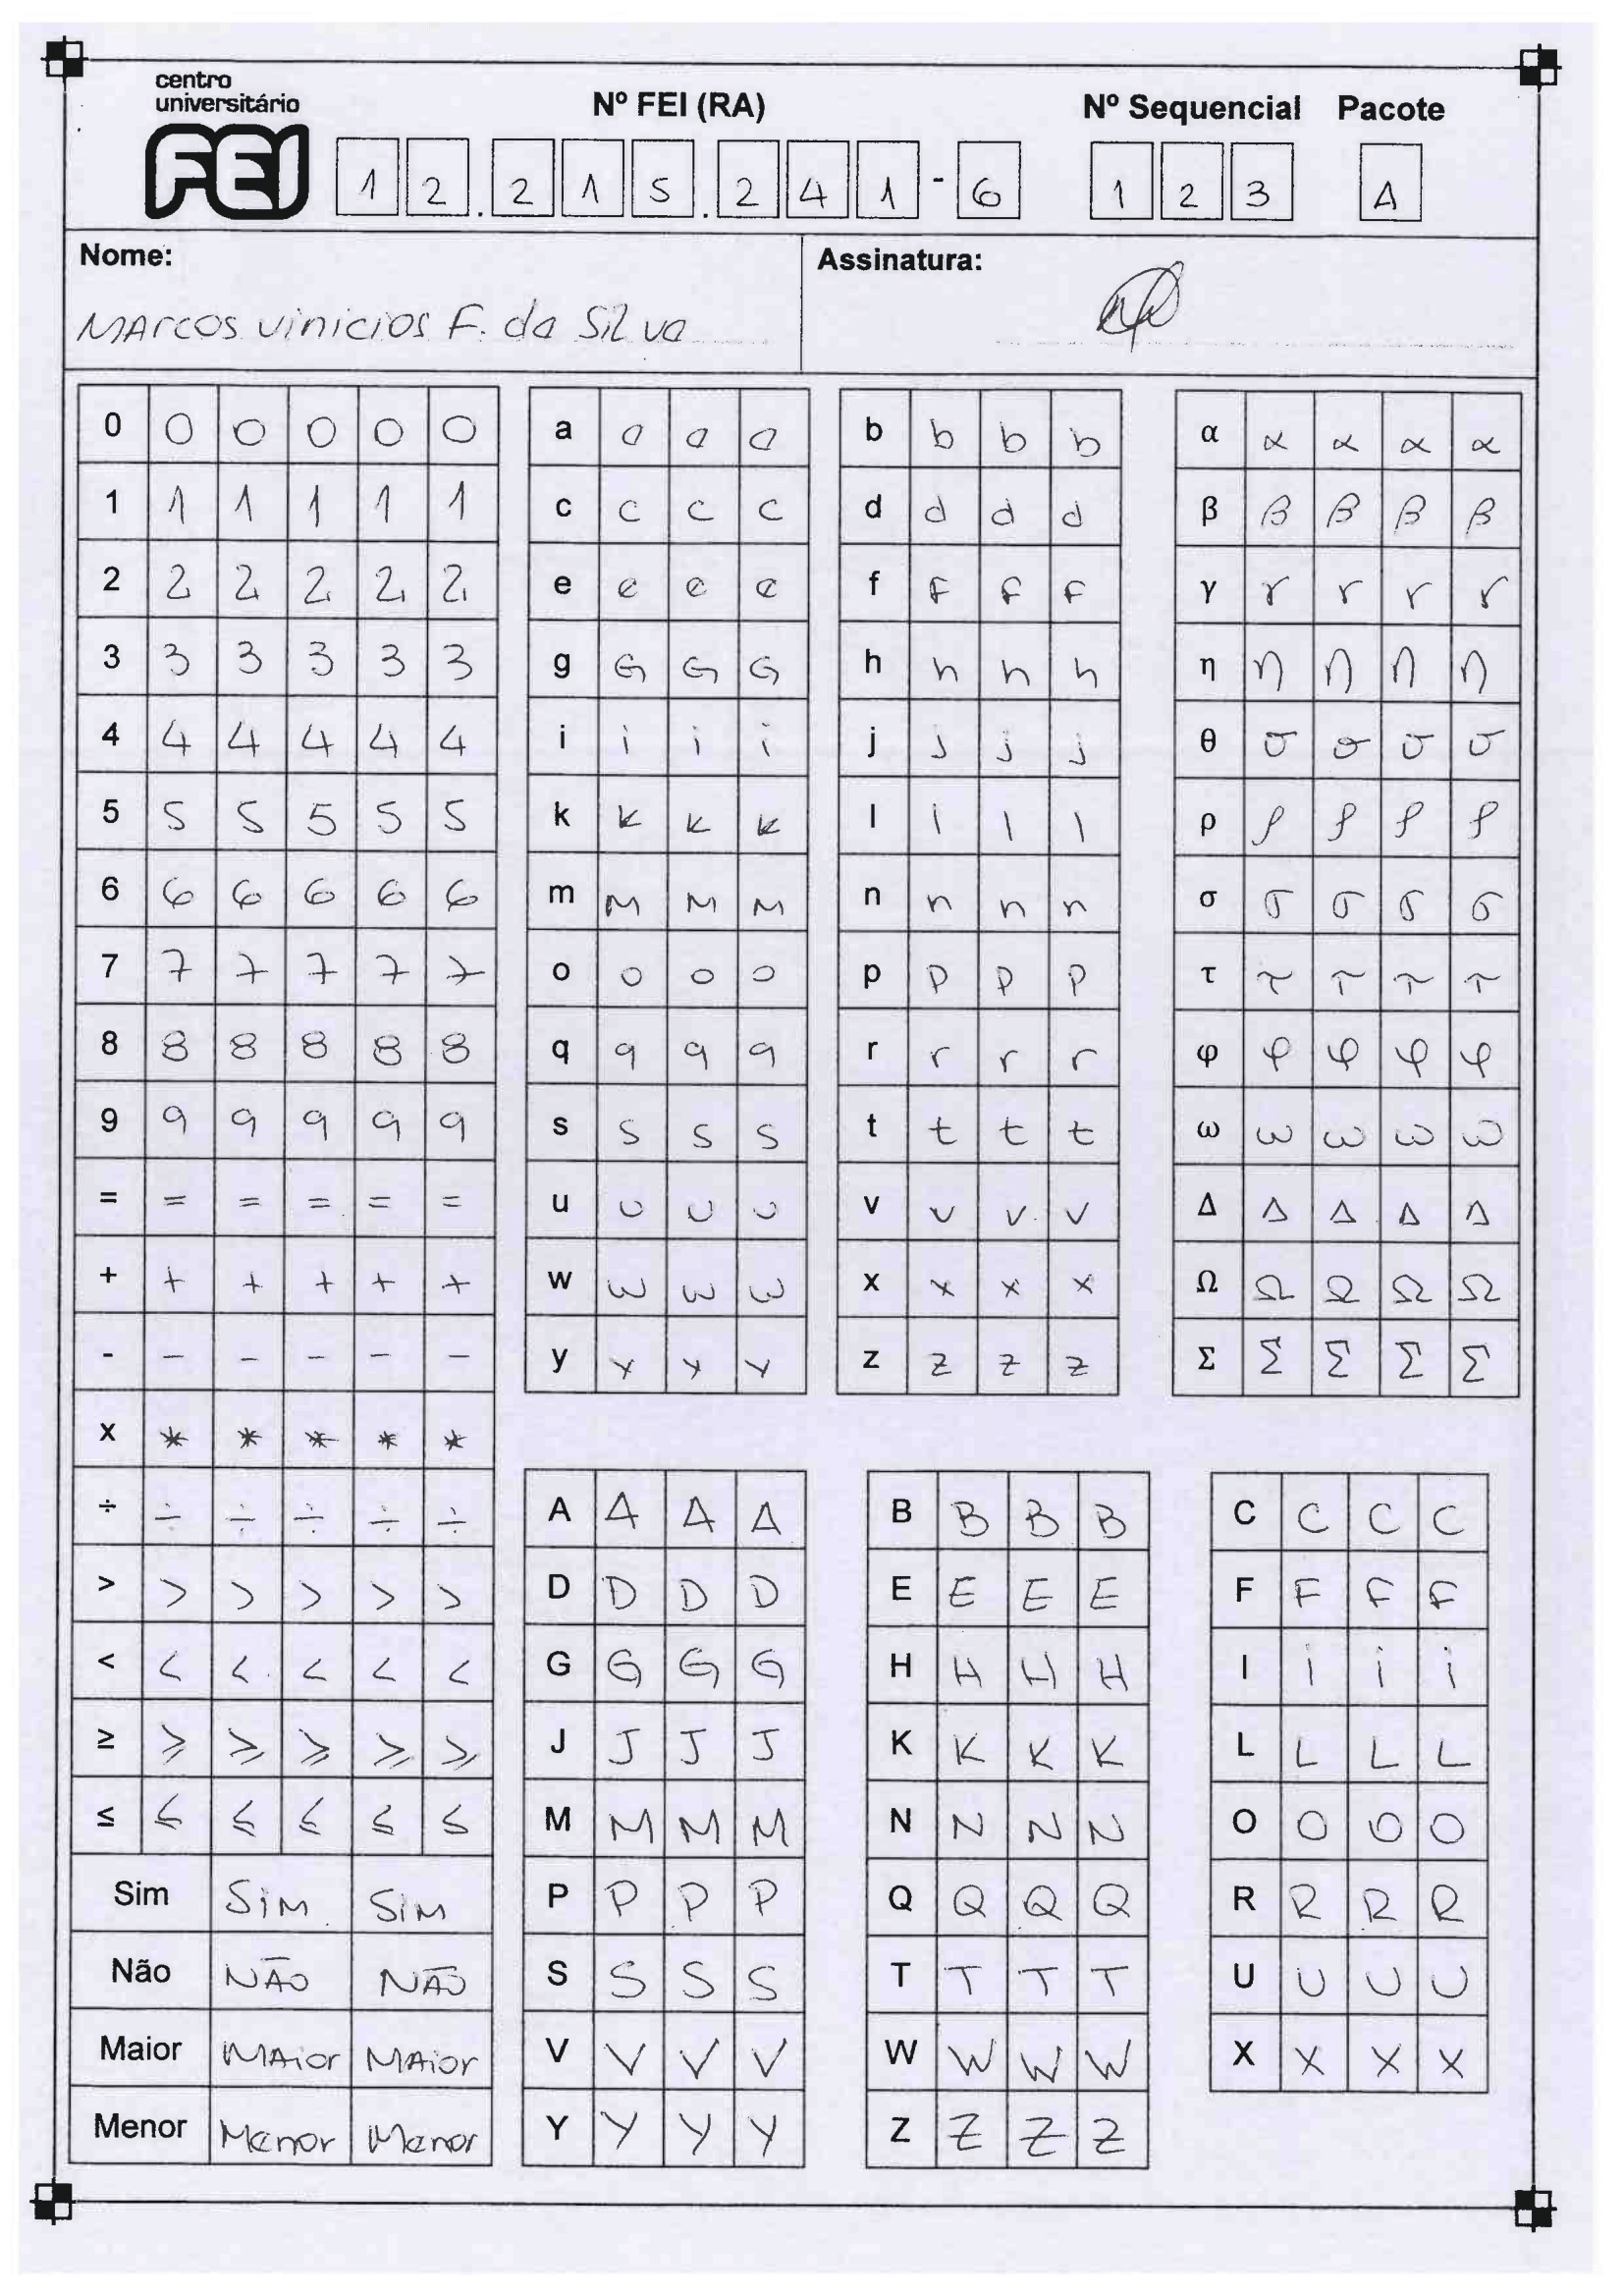 centro
universitário
FEI
Nº FEI (RA)
12.215.241-6
Nº Sequencial
123
Pacote
A
Nome:
MArcos vinicios F. da Silva
Assinatura:
0 0 0 0 0 0
1 1 1 1 1 1
2 2 2 2 2 2
3 3 3 3 3 3
4 4 4 4 4 4
5 5 5 5 5 5
6 6 6 6 6 6
7 7 7 7 7 7
8 8 8 8 8 8
9 9 9 9 9 9
= = = = = =
+ + + + + +
- - - - - -
x * * * * *
÷ ÷ ÷ ÷ ÷ ÷
> > > > > >
< < < < < <
≥ ≥ ≥ ≥ ≥ ≥
≤ ≤ ≤ ≤ ≤ ≤
Sim SiM SiM
Não NÃO NÃO
Maior MAior MAior
Menor Menor Menor
a a a a
c c c c
e e e e
g G G G
i i i i
k k k k
m M M M
o o o o
q q q q
s s s s
u u u u
w w w w
y y y y
b b b b
d d d d
f F F F
h h h h
j j j j
l l l l
n n n n
p p p p
r r r r
t t t t
v v v v
x x x x
z z z z
α α α α α
β β β β β
γ γ γ γ γ
η η η η η
θ σ σ σ σ
ρ ρ ρ ρ ρ
σ σ σ σ σ
τ τ τ τ τ
φ φ φ φ φ
ω ω ω ω ω
Δ Δ Δ Δ Δ
Ω Ω Ω Ω Ω
Σ Σ Σ Σ Σ
A A A A
D D D D
G G G G
J J J J
M M M M
P P P P
S S S S
V V V V
Y Y Y Y
B B B B
E E E E
H H H H
K K K K
N N N N
Q Q Q Q
T T T T
W W W W
Z Z Z Z
C C C C
F F F F
I i i i
L L L L
O O O O
R R R R
U U U U
X X X X